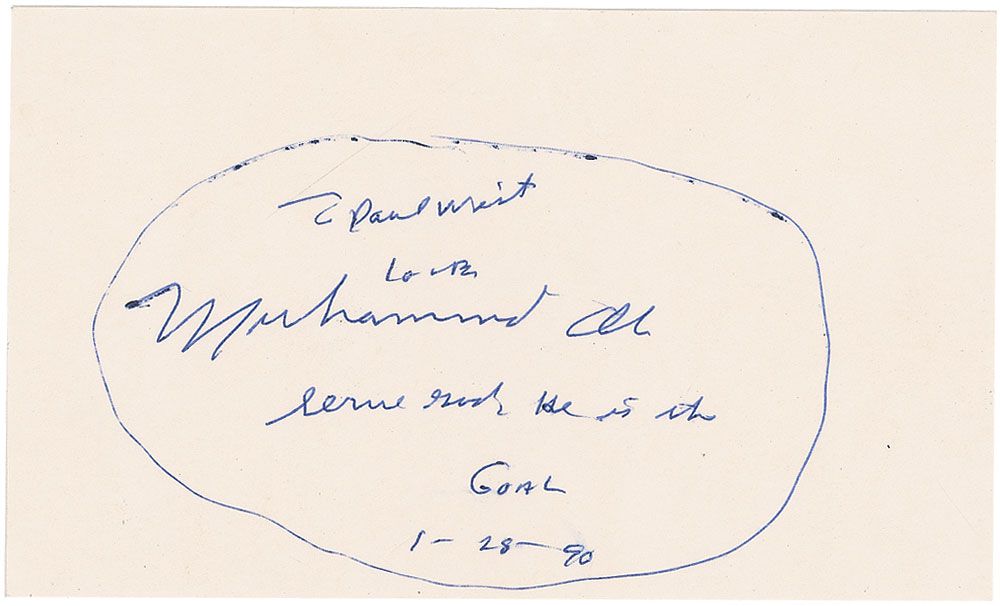 To Paul Wrist
Love
Muhammad Ali
Serve God, He is the
GOAL
1-28-90